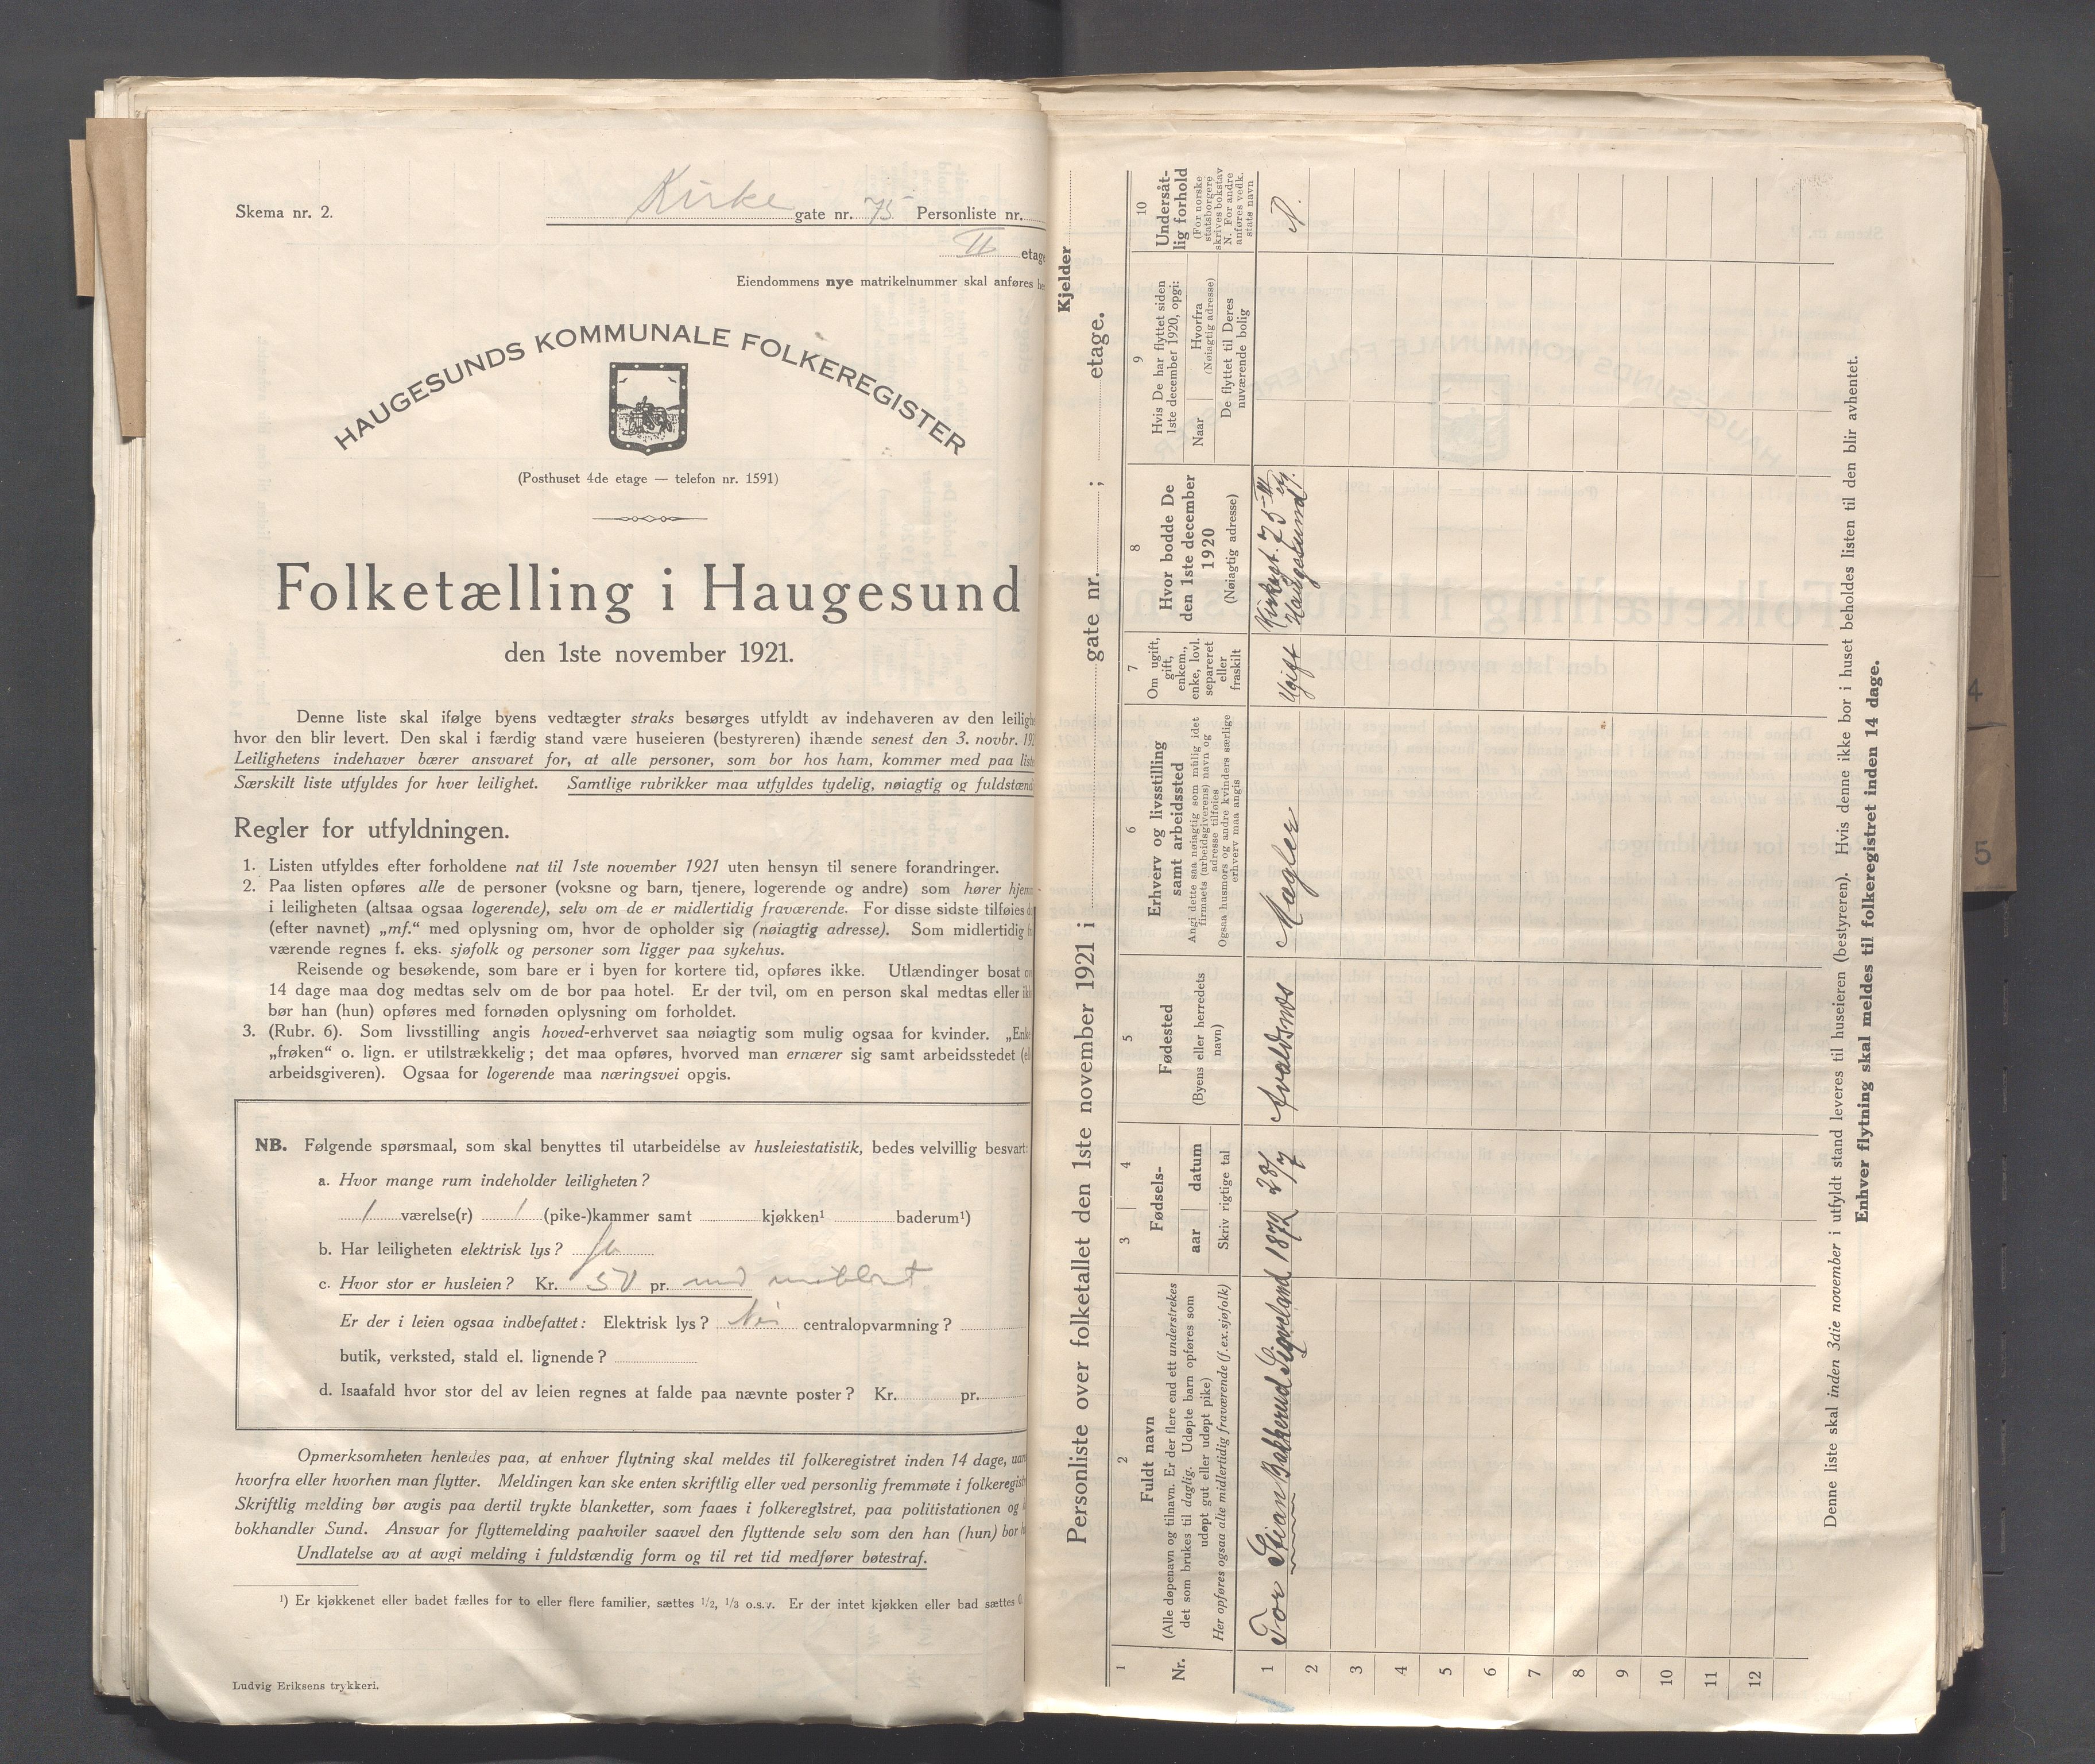 Skema nr. 2.
Kirke gate nr. 75 Personliste nr.
II etage
Eiendommens nye matrikelnummer skal anføres her
HAUGESUNDS KOMMUNALE FOLKEREGISTER
(Posthuset 4de etage — telefon nr. 1591)
Folketælling i Haugesund
den 1ste november 1921.
Denne liste skal ifølge byens vedtægter straks besørges utfyldt av indehaveren av den leilighe
hvor den blir levert. Den skal i færdig stand være huseieren (bestyreren) ihænde senest den 3. novbr. 192
Leilighetens indehaver bærer ansvaret for, at alle personer, som bor hos ham, kommer med paa liste
Særskilt liste utfyldes for hver leilighet. Samtlige rubrikker maa utfyldes tydelig, nøiagtig og fuldstænd
Regler for utfyldningen.
1. Listen utfyldes efter forholdene nat til 1ste november 1921 uten hensyn til senere forandringer.
2. Paa listen opføres alle de personer (voksne og barn, tjenere, logerende og andre) som hører hjem
i leiligheten (altsaa ogsaa logerende), selv om de er midlertidig fraværende. For disse sidste tilføies d
(efter navnet) „mf.“ med oplysning om, hvor de opholder sig (nøiagtig adresse). Som midlertidig fr
værende regnes f. eks. sjøfolk og personer som ligger paa sykehus.
Reisende og besøkende, som bare er i byen for kortere tid, opføres ikke. Utlændinger bosat ov
14 dage maa dog medtas selv om de bor paa hotel. Er der tvil, om en person skal medtas eller ikk
bør han (hun) opføres med fornøden oplysning om forholdet.
3. (Rubr. 6). Som livsstilling angis hoved-erhvervet saa nøiagtig som mulig ogsaa for kvinder. „Enke
„frøken“ o. lign. er utilstrækkelig; det maa opføres, hvorved man ernærer sig samt arbeidsstedet (el
arbeidsgiveren). Ogsaa for logerende maa næringsvei opgis.
NB. Følgende spørsmaal, som skal benyttes til utarbeidelse av husleiestatistik, bedes velvillig besvart:
a. Hvor mange rum indeholder leiligheten?
1 værelse(r) 1 (pike-)kammer samt kjøkken¹ baderum¹)
b. Har leiligheten elektrisk lys? Ja
c. Hvor stor er husleien? Kr. 50 pr. md møblert
Er der i leien ogsaa indbefattet: Elektrisk lys? Nei centralopvarmning?
butik, verksted, stald el. lignende?
d. Isaafald hvor stor del av leien regnes at falde paa nævnte poster? Kr. pr.
Opmerksomheten henledes paa, at enhver flytning skal meldes til folkeregistret inden 14 dage, uan
hvorfra eller hvorhen man flytter. Meldingen kan ske enten skriftlig eller ved personlig fremmøte i folkeregist
Skriftlig melding bør avgis paa dertil trykte blanketter, som faaes i folkeregistret, paa politistationen og
bokhandler Sund. Ansvar for flyttemelding paahviler saavel den flyttende selv som den han (hun) bor h
Undlatelse av at avgi melding i fuldstændig form og til ret tid medfører bøtestraf.
¹) Er kjøkkenet eller badet fælles for to eller flere familier, sættes 1/2, 1/3 o.s.v. Er der intet kjøkken eller bad sættes 0.
Ludvig Eriksens trykkeri.
Kjelder
Personliste over folketallet den 1ste november 1921 i gate nr. ; etage.
1
Nr.
2
Fuldt navn
(Alle døpenavn og tilnavn. Er der flere end ett understrekes
det som brukes til daglig. Udøpte barn opføres som
udøpt gut eller udøpt pike)
Her opføres ogsaa alle midlertidig fraværende (f.ex.sjøfolk)
3 4
Fødsels-
aar datum
Skriv rigtige tal
5
Fødested
(Byens eller herredets
navn)
6
Erhverv og livsstilling
samt arbeidssted
Angi dette saa nøiagtig som mulig idet
firmaets (arbeidsgiverens) navn og
adresse tilføies
Ogsaa husmors og andre kvinders særlige
erhverv maa angis
7
Om ugift,
gift,
enkem.,
enke, lovl.
separeret
eller
fraskilt
8
Hvor bodde De
den 1ste december
1920
(Nøiagtig adresse)
9
Hvis De har flyttet siden
1ste december 1920, opgi:
Naar
Hvorfra
(Nøiagtig adresse)
De flyttet til Deres
nuværende bolig
10
Undersåt-
lig forhold
(For norske
statsborgere
skrives bokstav
N. For andre
anføres vedk.
stats navn
1 Tor Stian Bakkerud Sigveland 1872 28/7 Avaldsnes Mægler Ugift Kirkegt. 75 II
Haugesund.
N.
2
3
4
5
6
7
8
9
10
11
12
Denne liste skal inden 3die november i utfyldt stand leveres til huseieren (bestyreren). Hvis denne ikke bor i huset beholdes listen til den blir avhentet.
Enhver flytning skal meldes til folkeregistret inden 14 dage.
4
5